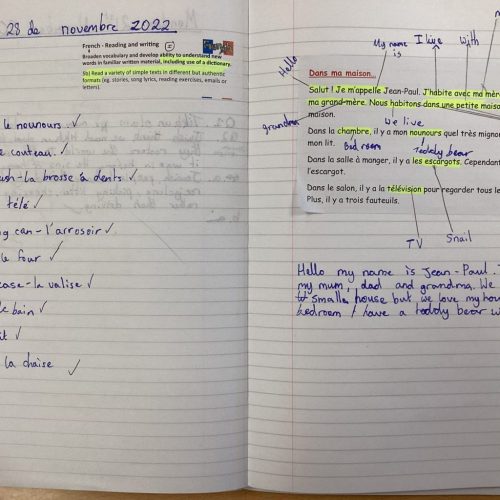 28 de novembre 2022
French - Reading and writing
Broaden vocabulary and develop ability to understand new
words in familiar written material, including use of a dictionary.
5b) Read a variety of simple texts in different but authentic
formats (eg. stories, song lyrics, reading exercises, emails or
letters).
le nounours. ✓
couteau. ✓
la brosse à dents ✓
télé ✓
can - l'arrosoir ✓
le four ✓
case - la valise ✓
bain ✓
✓
la chaise ✓
Hello
My name
is
I live
with
Dans ma maison...
Salut ! Je m'appelle Jean-Paul. J'habite avec ma mère
ma grand-mère. Nous habitons dans une petite maison
maison.
grandma
We live
Dans la chambre, il y a mon nounours quel très mignon
mon lit.
Bed room
Teddy bear
Dans la salle à manger, il y a les escargots. Cependant
l'escargot.
Dans le salon, il y a la télévision pour regarder tous le
Plus, il y a trois fauteuils.
TV
Snail
Hello my name is Jean-Paul.
my mum, dad and grandma. We
smalle house but we love my
bedroom I have a teddy bear